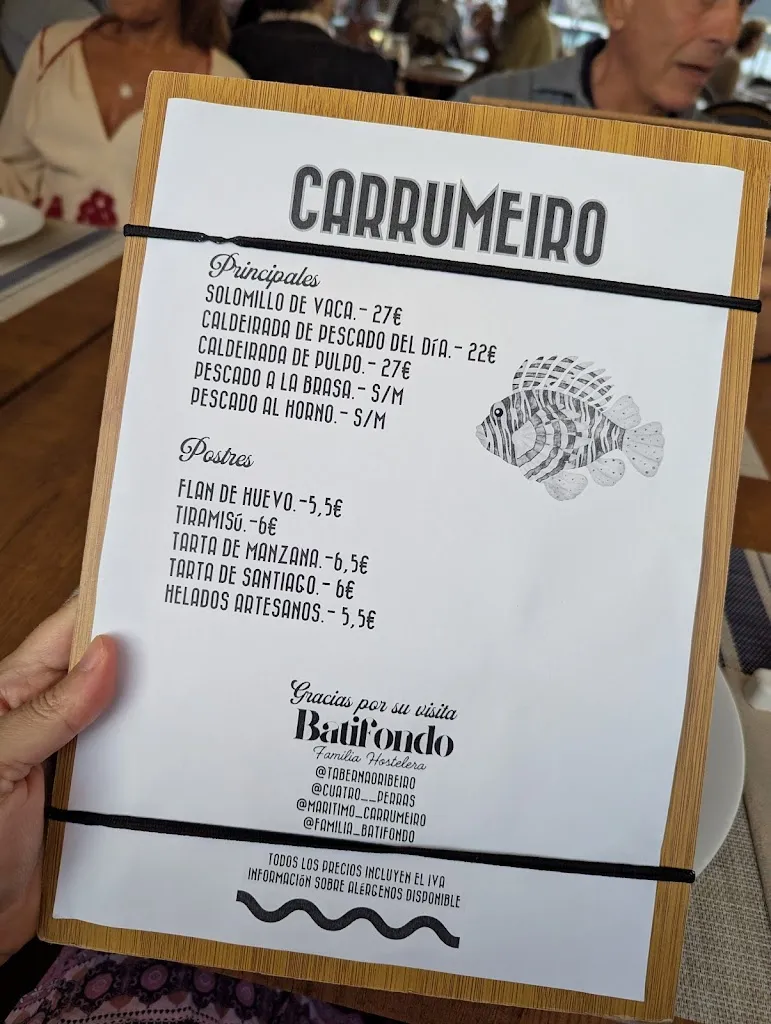 CARRUMEIRO
Principales
SOLOMILLO DE VACA.- 27€
CALDEIRADA DE PESCADO DEL DÍA.- 22€
CALDEIRADA DE PULPO.- 27€
PESCADO A LA BRASA.- S/M
PESCADO AL HORNO.- S/M
Postres
FLAN DE HUEVO.-5,5€
TIRAMISÚ.-6€
TARTA DE MANZANA.-6,5€
TARTA DE SANTIAGO.- 6€
HELADOS ARTESANOS.- 5,5€
Gracias por su visita
Batifondo
Familia Hostelera
@TABERNAORIBEIRO
@CUATRO__PERRAS
@MARITIMO_CARRUMEIRO
@FAMILIA_BATIFONDO
TODOS LOS PRECIOS INCLUYEN EL IVA
INFORMACIÓN SOBRE ALÉRGENOS DISPONIBLE